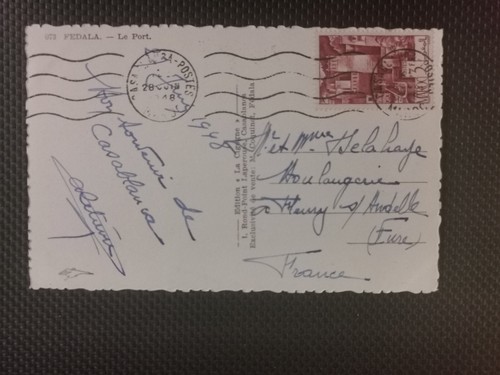 373 FEDALA. — Le Port.
CASABLANCA-POSTES
28
1948
Bon souvenir de
Casablanca
Edition « La Cigogne »
1, Rond-Point Lapeyrere, Casablanca
Exclusivité de vente: M. Coquinot, Fédala
Mr et Mme Delahaye
Boulangerie
à Fleury s/Andelle
(Eure)
France